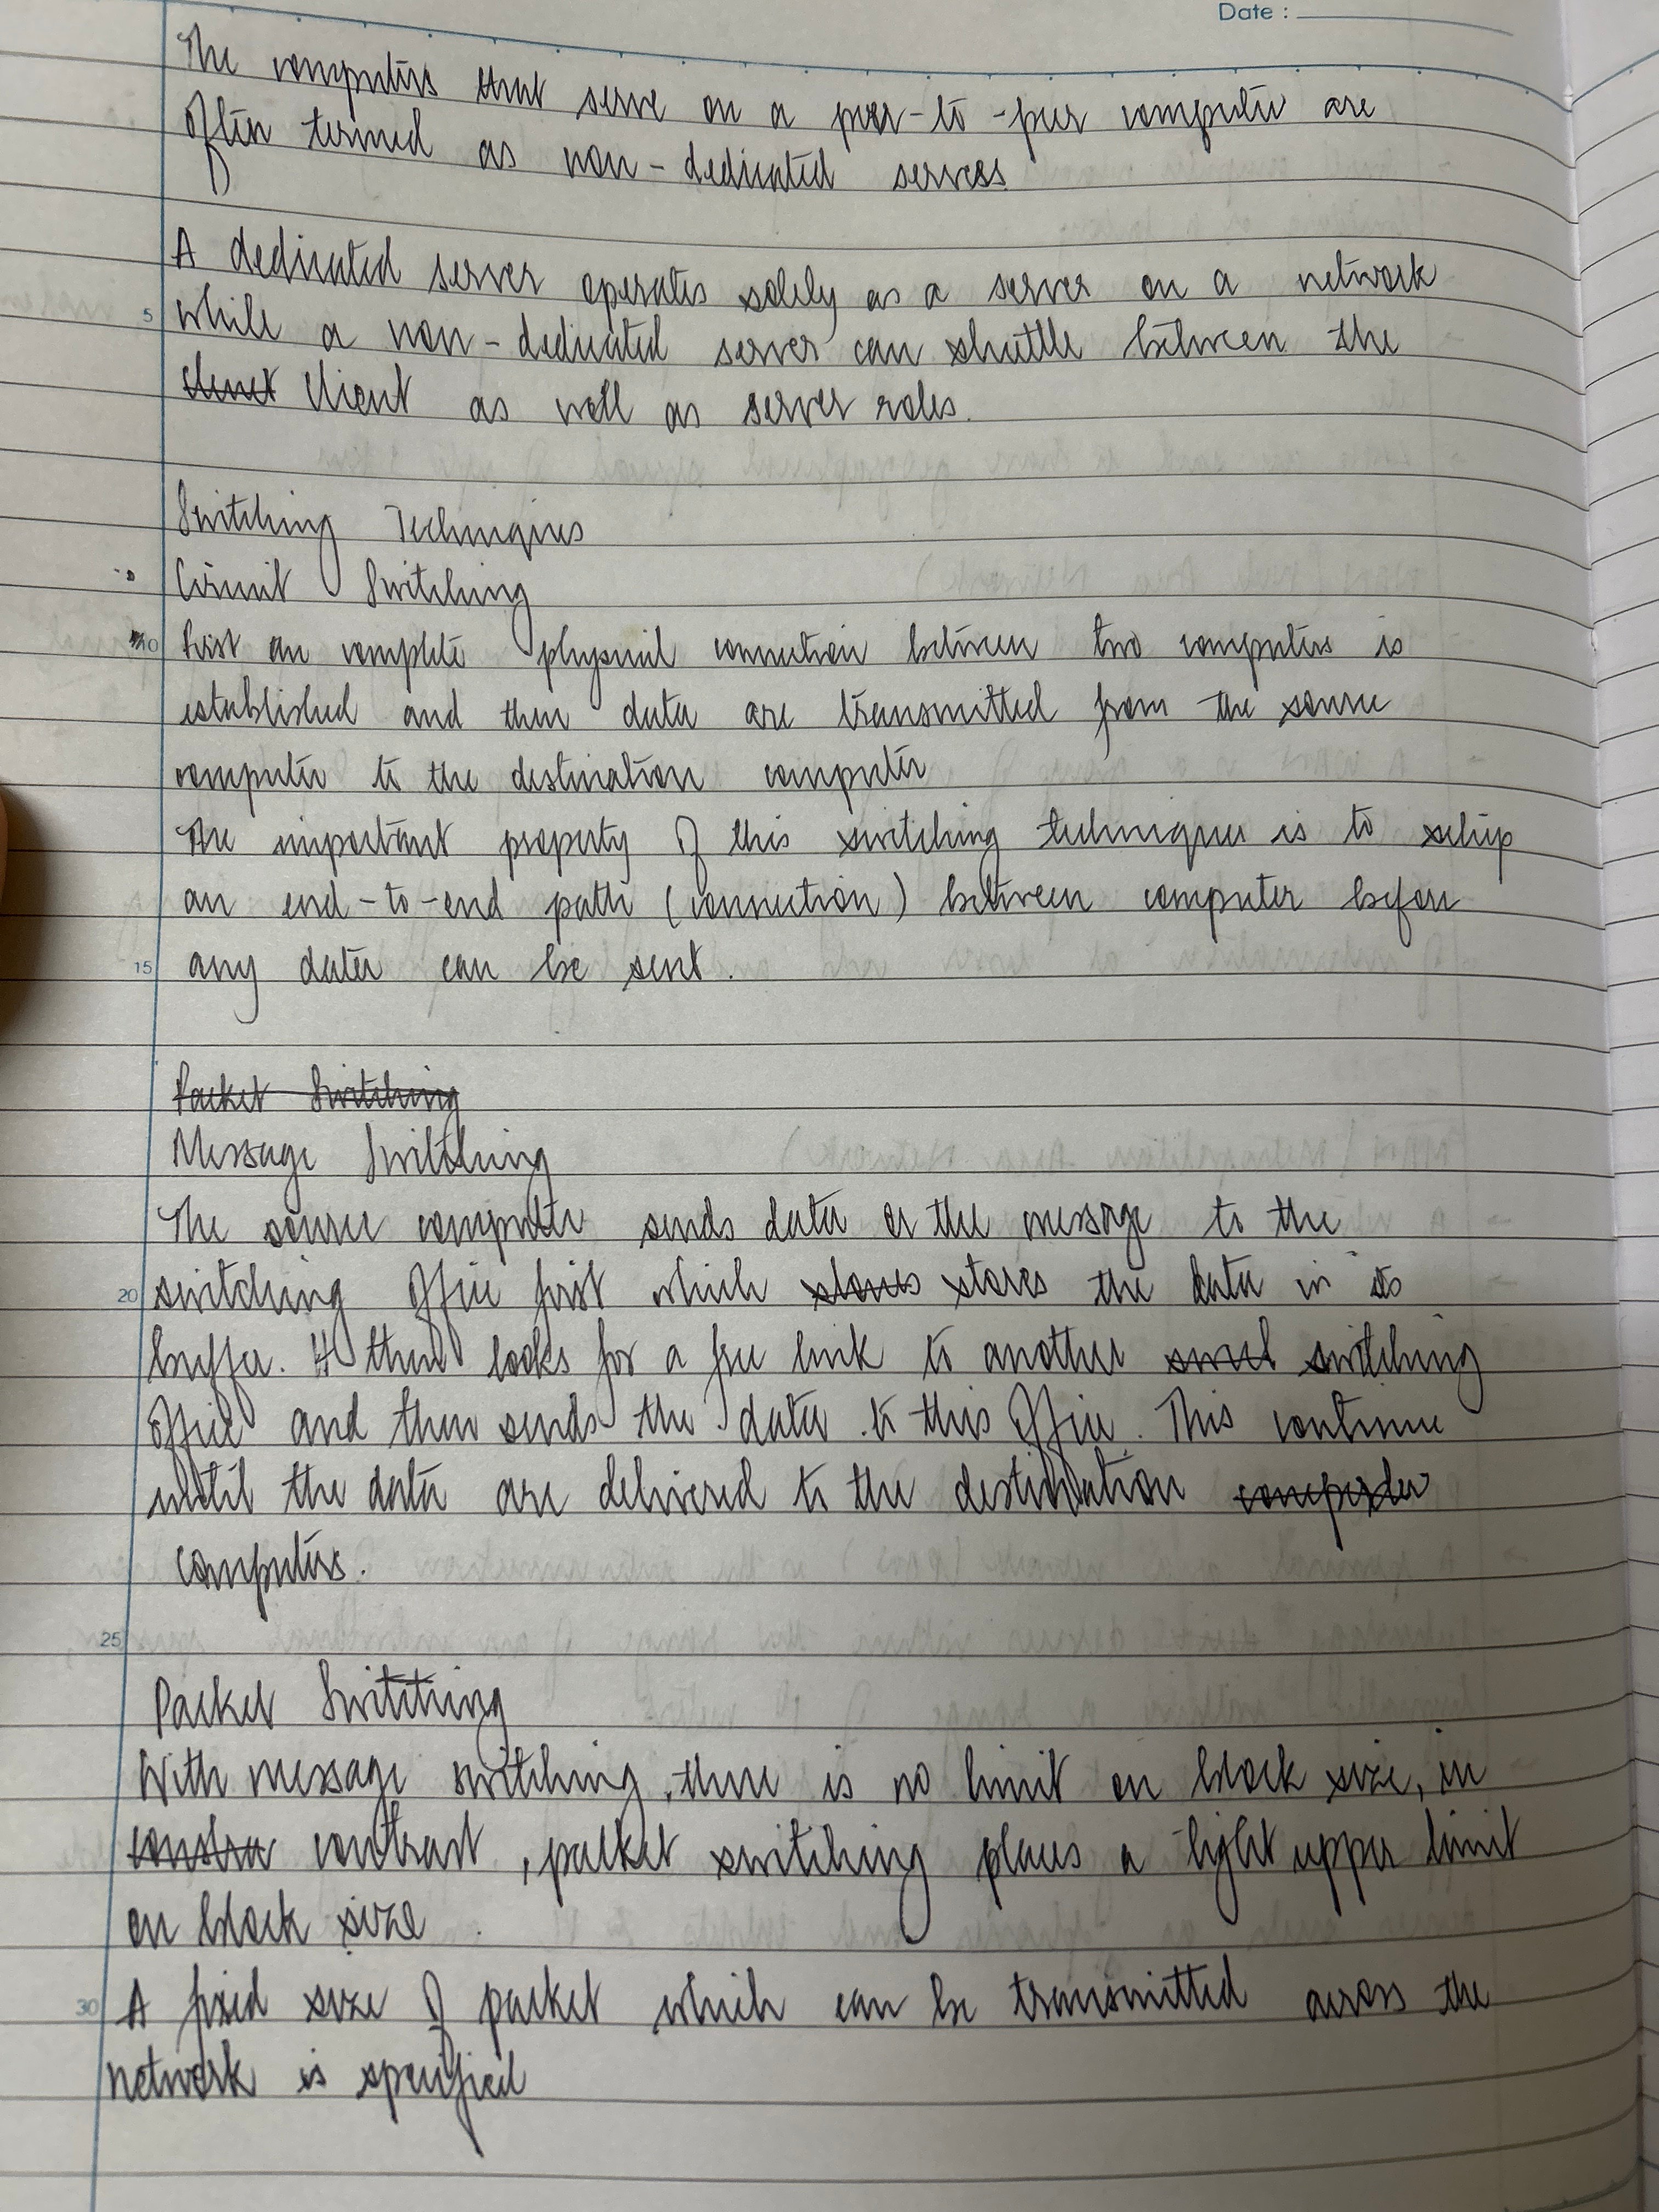 Date :
The computers that serve on a peer-to-peer computer are
often termed as non-dedicated servers
A dedicated server operates solely as a server on a network
5 while a non-dedicated server can shuttle between the
client as well as server roles.
Switching Techniques
Circuit Switching
10 first an complete physical connection between two computers is
established and then data are transmitted from the source
computer to the destination computer
The important property of this switching techniques is to setup
an end-to-end path (connection) between computer before
15 any data can be sent.
Packet Switching
Message Switching
The source computer sends data or the message to the
20 switching office first which stores the data in its
buffer. It then looks for a free link to another switching
office and then sends the data to this office. This continue
until the data are delivered to the destination computer
computers.
25
Packet Switching
With message switching, there is no limit on block size, in
contrast, packet switching places a tight upper limit
on block size.
30 A fixed size of packet which can be transmitted across the
network is specified